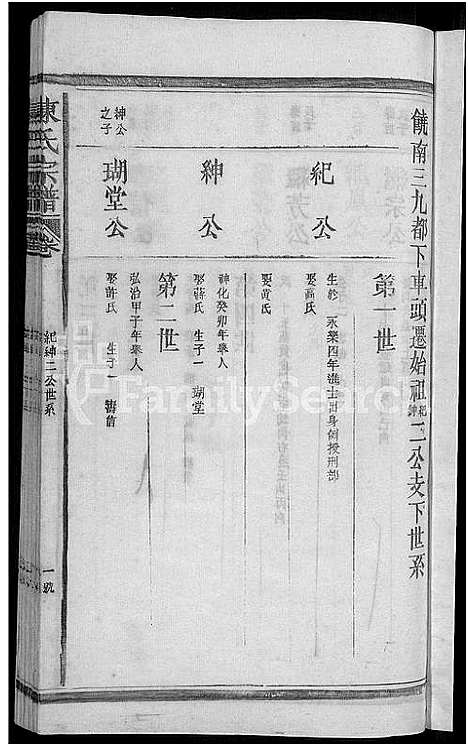 饒南三九都下車頭遷始祖紀紳二公支下世系
第一世
紀公
生於 永樂四年進士出身例授刑部
娶高氏
娶黃氏
紳公
紳化癸卯年舉人
娶蔣氏 生子一 瑚堂
第二世
紳公之子
瑚堂公
弘治甲子年舉人
娶許氏 生子一
陳氏宗譜
卷
紀紳二公世系
一號
FamilySearch